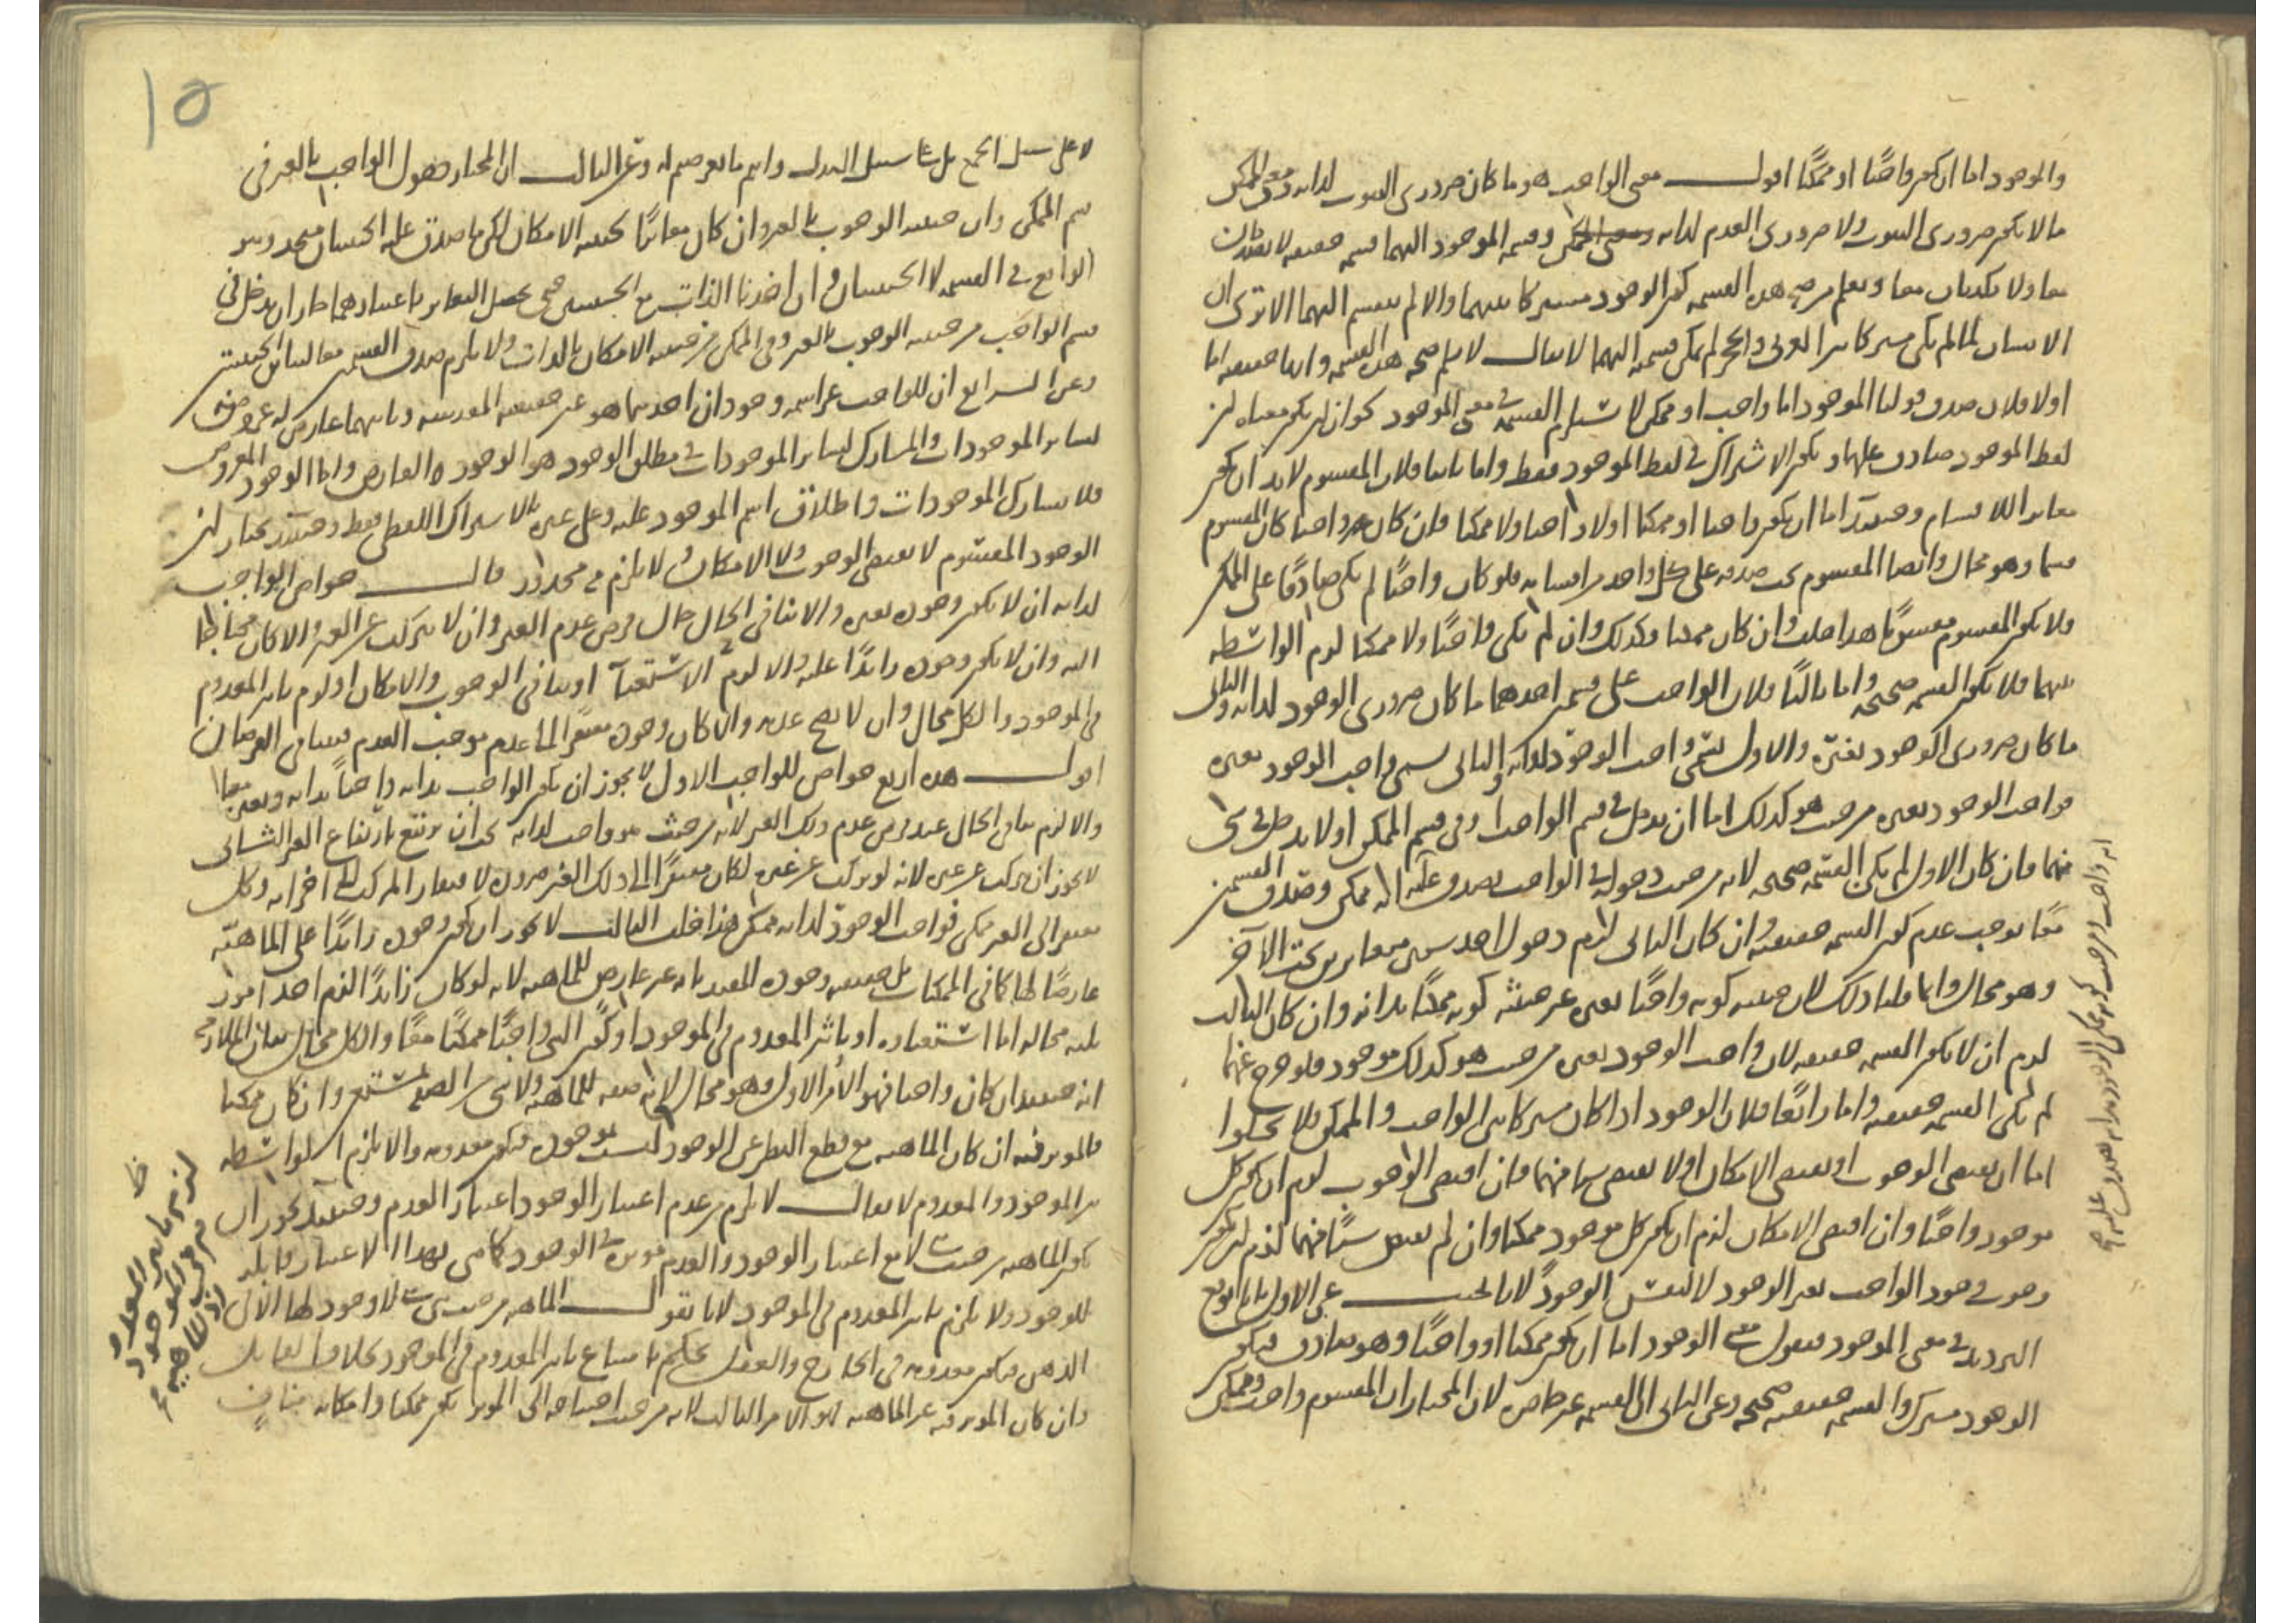 والموجود اما ان يكون واجبًا او ممكنًا اقول معنى الواجب هو ما كان ضروري الثبوت لذاته ومعنى الممكن
ما لا يكون ضروري الثبوت ولا ضروري العدم لذاته وقسمة الموجود اليهما قسمة حقيقية لا يصدقان
معا ولا يكذبان معا ويعلم من صحة هذه القسمة كون الوجود مشتركا بينهما والا لم ينقسم اليهما الا ترى ان
الانسان لما لم يكن مشتركا بين الفرس والحجر لم يكن قسمته اليهما لا يقال لا نسلم صحة هذه القسمة وانها حقيقية اما
اولا فلان صدق قولنا الموجود اما واجب او ممكن لا يستلزم القسمة في معنى الموجود لجواز ان يكون معناه ان
لفظ الموجود صادق عليهما ويكون الاشتراك في لفظ الموجود فقط واما ثانيا فلان المقسوم لا بد ان يكون
مغايرا للاقسام وحينئذ اما ان يكون واجبا او ممكنا او لا واجبا ولا ممكنا فان كان واجبا كان المقسوم
قسما وهو محال وايضا المقسوم يجب صدقه على كل واحد من اقسامه فلو كان واجبًا لم يكن صادقًا على الممكن
ولا يكون المقسوم مقسومًا هذا خلف وان كان ممكنا فكذلك وان لم يكن واجبًا ولا ممكنا لزم الواسطة
بينهما فلا يكون القسمة صحيحة واما ثالثًا فلان الواجب على قسمين احدهما ما كان ضروري الوجود لذاته والثاني
ما كان ضروري الوجود بغيره والاول يسمى واجب الوجود لذاته والثاني يسمى واجب الوجود بغيره
فواجب الوجود بغيره من حيث هو كذلك اما ان يدخل في قسم الواجب او في قسم الممكن او لا يدخل في شيء
منهما فان كان الاول لم يكن القسمة صحيحة لانه من حيث دخوله في الواجب يصدق عليه انه ممكن وصدق القسمين
معًا يوجب عدم كون القسمة حقيقية وان كان الثاني لزم دخول احد شيئين متغايرين تحت الآخر
وهو محال وانما قلنا ذلك لان حيثية كونه واجبًا بغيره غير حيثية كونه ممكنًا بذاته وان كان الثالث
لزم ان لا يكون القسمة حقيقية لان واجب الوجود بغيره من حيث هو كذلك موجود فلو خرج عنهما
لم يكن القسمة حقيقية واما رابعًا فلان الوجود اذا كان مشتركا بين الواجب والممكن فلا يخلوا
اما ان يقتضي الوجوب او يقتضي الامكان او لا يقتضي شيئا منهما فان اقتضى الوجوب لزم ان يكون كل
موجود واجبًا وان اقتضى الامكان لزم ان يكون كل موجود ممكنا وان لم يقتض شيئًا منهما لزم ان يكون
وجوب وجود الواجب بغير الوجود لا لنفس الوجود لانا نجيب عن الاول بانا نوقع
الترديد في معنى الموجود فنقول معنى الوجود اما ان يكون ممكنا او واجبًا وهو صادق فيكون
الوجود مشتركا والقسمة حقيقية صحيحة وعن الثاني ان القسمة غير حاصرة لان المختار ان المقسوم واجب وممكن
انه واجب ومن حيث كونه ممكن الوجود بذاته يصدق عليه
١٥
لا على سبيل الجمع بل على سبيل البدل وانتم ما تعرضتم له وعن الثالث ان المختار دخول الواجب بالغير في
قسم الممكن وان حيثية الوجوب بالغير وان كان مغايرًا لحيثية الامكان لكن ما صدق عليه الحيثيتان متحد وهو
الواقع في القسمة لا الحيثيتان وان اخذنا الذات مع الحيثيتين حتى يحصل التغاير باعتبارهما جاز ان يدخل في
قسم الواجب من حيثية الوجوب بالغير وفي الممكن من حيثية الامكان بالذات ولا يلزم صدق القسمين معا لتباين الحيثيتين
وعن الرابع ان للواجب عز اسمه وجودان احدهما هو عين حقيقته المقدسة وثانيهما عارض له عروضه
لسائر الموجودات والمشارك لسائر الموجودات في مطلق الوجود هو الوجود العارض واما الوجود المعروض
فلا يشارك الموجودات واطلاق اسم الموجود عليه وعلى غيره بالاشتراك اللفظي فقط وحينئذ نختار ان
الوجود المقسوم لا يقتضي الوجوب ولا الامكان ولا يلزم محذور قال خواص الواجب
لذاته ان لا يكون وجوبه بغيره والا لنافى الحال حال فرض عدم الغير وان لا يتركب عن الغير والا لكان محتاجًا
اليه وان لا يكون وجوده زائدًا عليه والا لزم الاستغناء او تنافي الوجوب والامكان او لزم تأثير المعدوم
في الموجود والكل محال وان لا يصح عدمه والا لكان وجوده مفتقرا الى عدم موجب العدم فيتنافى الفرضان
اقول هذه اربع خواص للواجب الاول لا يجوز ان يكون الواجب بذاته واجبًا بذاته وبغيره معا
والا لزم تنافي الحال عند فرض عدم ذلك الغير لانه من حيث هو واجب لذاته يجب ان يرتفع بارتفاع الغير الثاني
لا يجوز ان يتركب عن غيره لانه لو تركب عن غيره لكان مفتقرًا الى ذلك الغير ضرورة لافتقار المركب الى اجزائه وكل
مفتقر الى الغير ممكن فواجب الوجود لذاته ممكن هذا خلف الثالث لا يجوز ان يكون وجوده زائدًا على الماهية
عارضًا لها كما في الممكنات بل حقيقته وجوده المقيد بانه غير عارض للماهية لانه لو كان زائدًا لزم احد امور
ثلثة محالة اما استغناؤه او تأثير المعدوم في الموجود او كون الشيء واجبًا ممكنًا معًا والكل محال بيان الملازمة
انه حينئذ ان كان واجبا فهو الأمر الاول وهو محال لانه صفة للماهية ولا شيء من الصفة بمستغن وان كان ممكنا
فالمؤثر فيه ان كان الماهية مع قطع النظر عن الوجود ليست موجودة فيكون معدومة والا يلزم الواسطة
بين الموجود والمعدوم لا يقال لا يلزم من عدم اعتبار الوجود اعتبار العدم وحينئذ يجوز ان
يكون الماهية من حيث هي لا مع اعتبار الوجود والعدم مؤثرة في الوجود كما هي بهذا الاعتبار قابلة
للوجود ولا يلزم تأثير المعدوم في الموجود لانا نقول الماهية من حيث هي هي لا وجود لها الا في
الذهن فيكون معدومة في الخارج والعقل يحكم بامتناع تأثير المعدوم في الموجود بخلاف القابل
وان كان المؤثر فيه غير الماهية فهو الامر الثالث لانه من حيث احتياجه الى المؤثر يكون ممكنا وامكانه منافٍ
لزم تأثير المعدوم
في الموجود